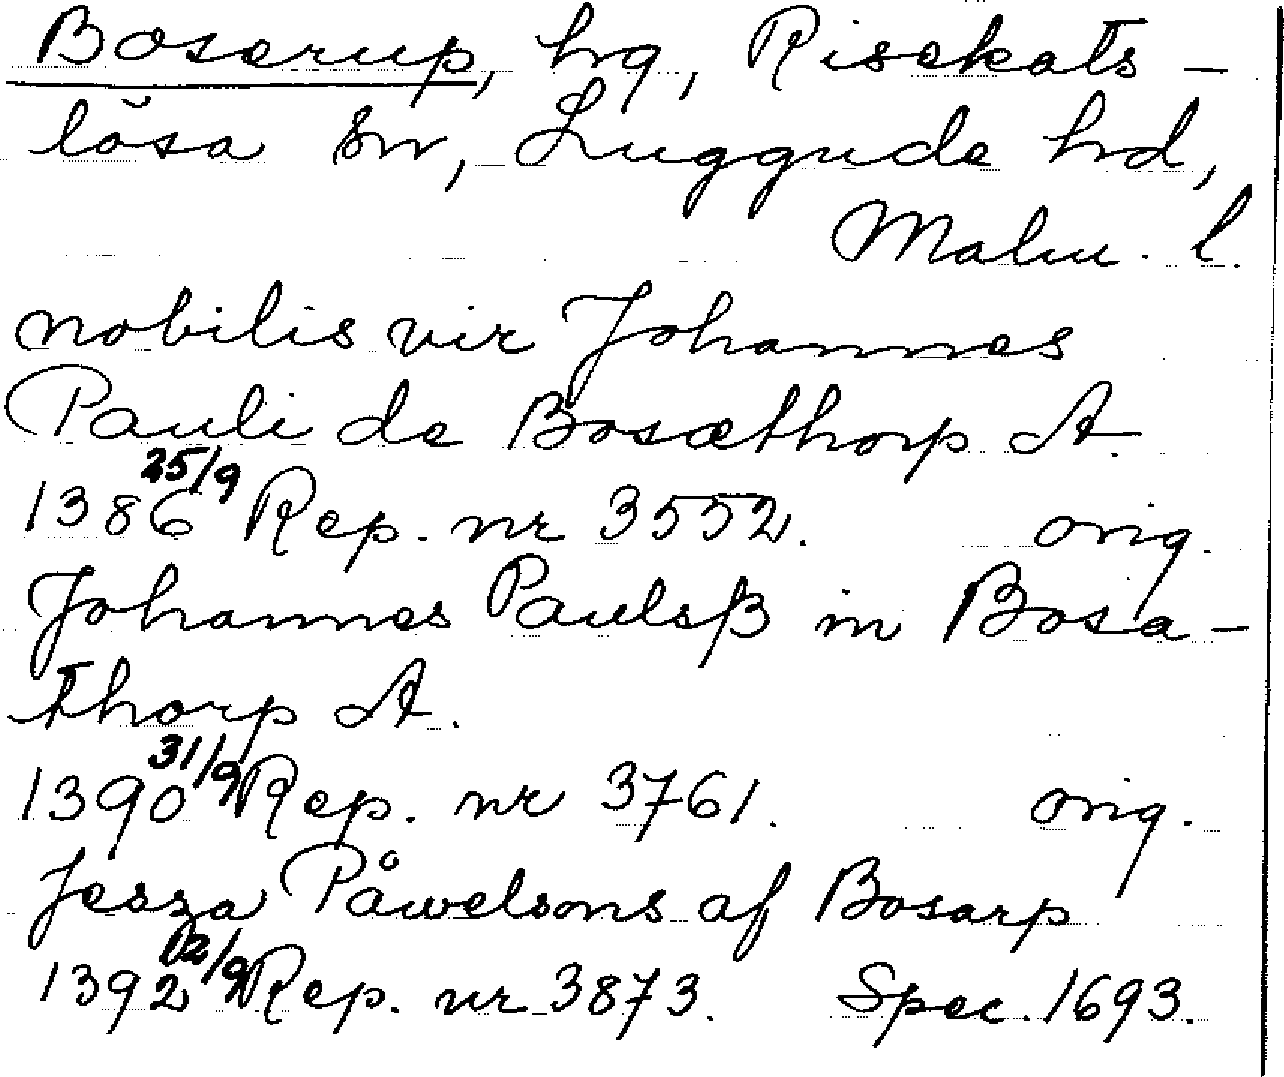 Boserup, hg, Risekats-
lösa sn, Luggude hd,
Malm. l.
nobilis vir Johannes
Pauli de Bosæthorp A.
1386 25/9 Rep. nr 3552. orig.
Johannes Paulsß in Bosa-
thorp A.
1390 31/9 Rep. nr 3761. orig.
Jesza Påwelsons af Bosarp
1392 12/9 Rep. nr 3873. Spec. 1693.